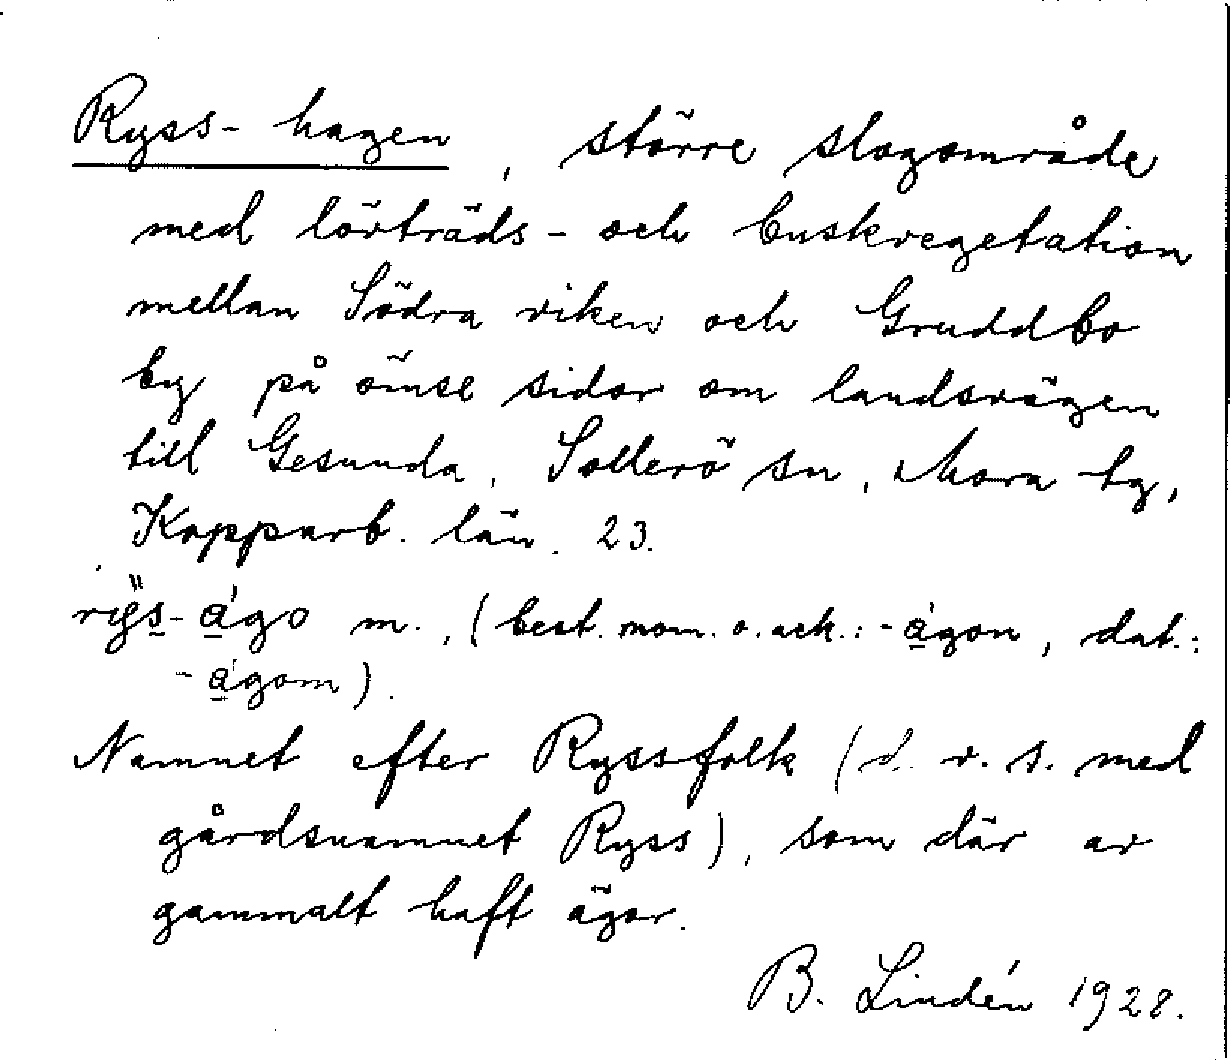 Ryss-hagen, större slogområde
med lövträds- och buskvegetation
mellan Södra viken och Gruddbo
by på ömse sidor om landsvägen
till Gesunda, Sollerö sn, Mora tg,
Kopparb. län. 23.
rÿs-ágo m., (best. nom. o. ack.: -ágon, dat.:
-ágom).
Namnet efter Ryssfolk (d. v. s. med
gårdsnamnet Ryss), som där av
gammalt haft ägor.
B. Lindén 1928.